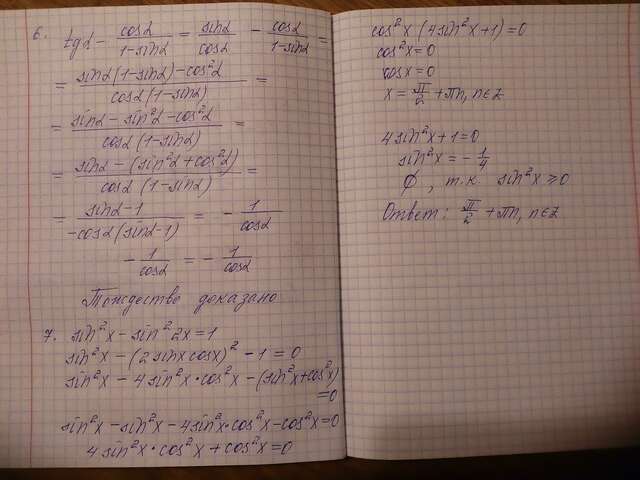 6. tgα - cosα/(1-sinα) = sinα/cosα - cosα/(1-sinα) =
= (sinα(1-sinα)-cos²α)/(cosα(1-sinα)) =
= (sinα - sin²α - cos²α)/(cosα(1-sinα)) =
= (sinα - (sin²α + cos²α))/(cosα(1-sinα)) =
= (sinα-1)/(-cosα(sinα-1)) = - 1/cosα
- 1/cosα = - 1/cosα
Тождество доказано
7. sin²x - sin²2x = 1
sin²x - (2 sinx cosx)² - 1 = 0
sin²x - 4sin²x·cos²x - (sin²x+cos²x)
=0
sin²x - sin²x - 4sin²x·cos²x - cos²x=0
4sin²x·cos²x + cos²x=0
cos²x (4sin²x+1)=0
cos²x=0
cosx=0
x = π/2 + πn, n∈Z
4sin²x+1=0
sin²x = - 1/4
∅, т.к. sin²x ⩾0
Ответ: π/2 + πn, n∈Z